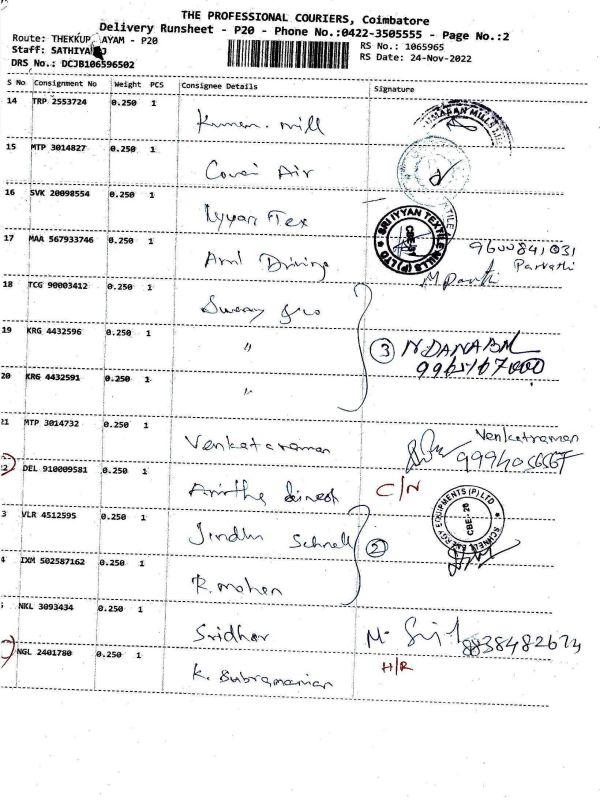 THE PROFESSIONAL COURIERS, Coimbatore
Delivery Runsheet - P20 - Phone No.:0422-3505555 - Page No.:2
Route: THEKKUP AYAM - P20
RS No.: 1065965
Staff: SATHIYA J
RS Date: 24-Nov-2022
DRS No.: DCJB106596502
S No Consignment No Weight PCS Consignee Details Signature
14 TRP 2553724 0.250 1
mill
15 MTP 3014827 0.250 1
Air
16 SVK 20098554 0.250 1
Iyyan Tex
SRI IYYAN TEXTILE MILLS (P) LTD
CBE
17 MAA 567933746 0.250 1
9600841031
Parvathi
18 TCG 90003412 0.250 1
19 KRG 4432596 0.250 1
"
3
20 KRG 4432591 0.250 1
"
21 MTP 3014732 0.250 1
Venkataraman
Venkatraman
2 DEL 910009581 0.250 1
C/N
3 VLR 4512595 0.250 1
Schnell
2
SCHNELL ENERGY EQUIPMENTS (P) LTD
CBE-20
4 IXM 502587162 0.250 1
R. mohan
NKL 3093434 0.250 1
Sridhar
NGL 2401780 0.250 1
K. Subramanian
H/R